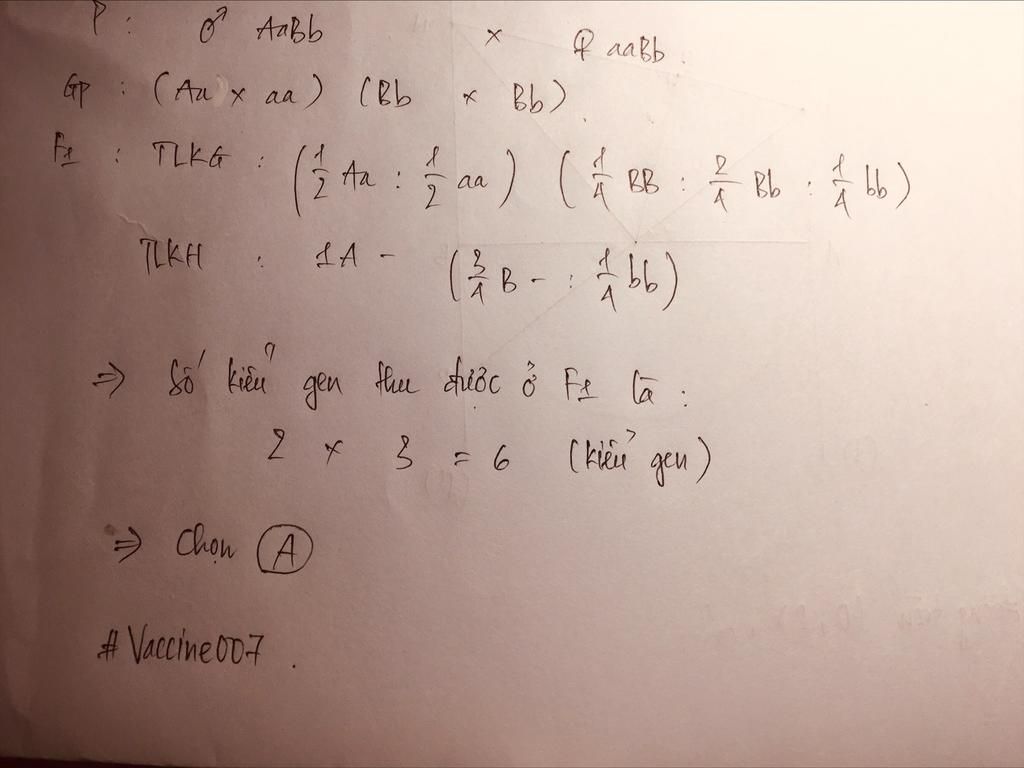 P : ♂ AaBb × ♀ aaBb .
Gp : (Aa × aa) (Bb × Bb) .
F1 : TLKG : (1/2 Aa : 1/2 aa) (1/4 BB : 2/4 Bb : 1/4 bb)
TLKH : 1A - (3/4 B - : 1/4 bb)
⇒ Số kiểu gen thu được ở F1 là :
2 × 3 = 6 (kiểu gen)
⇒ Chọn A
# Vaccine007 .